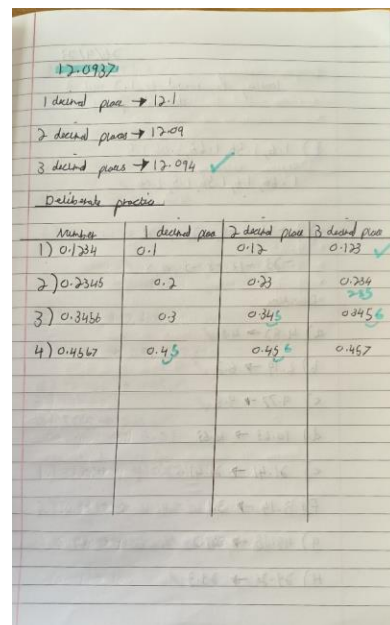 12.0937
1 decimal place → 12.1
2 decimal places → 12.09
3 decimal places → 12.094 ✓
Deliberate practice
Number 1 decimal place 2 decimal place 3 decimal place
1) 0.1234 0.1 0.12 0.123 ✓
2) 0.2345 0.2 0.23 0.234
235
3) 0.3456 0.3 0.345 0.3456
4) 0.4567 0.45 0.456 0.457